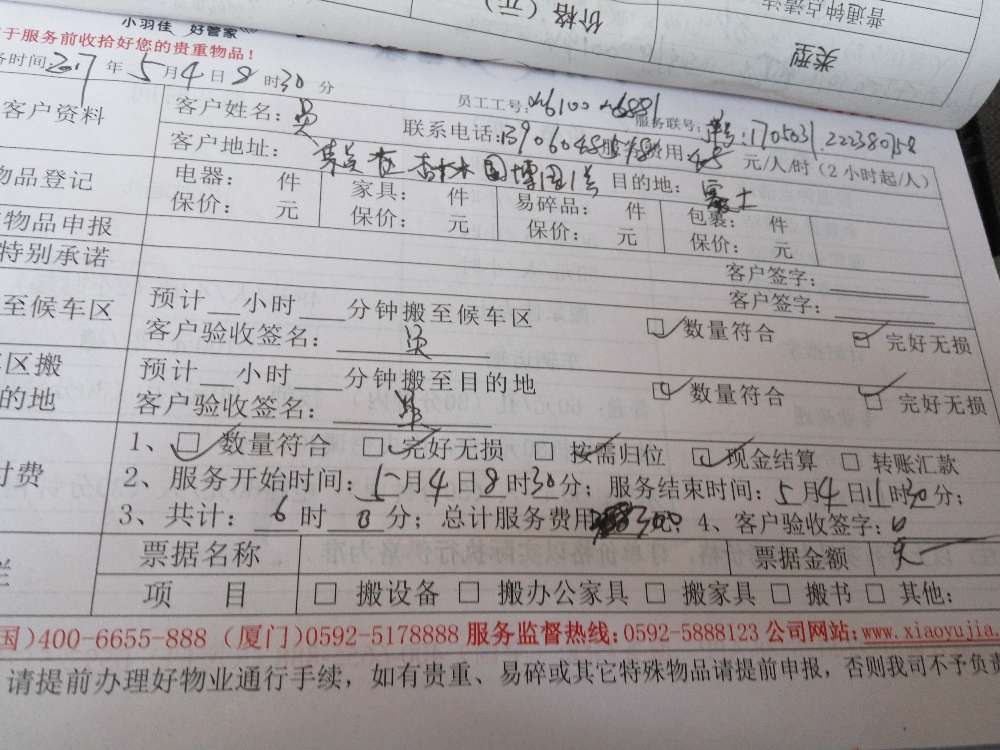 价格（元）
普通钟点清洁
类型
小羽佳 好管家
于服务前收拾好您的贵重物品！
务时间:2017年5月4日8时30分
员工工号:
服务联号:
单号:1705031.222380758
客户资料
客户姓名:
联系电话:
费用: 元/人/时（2小时起/人）
客户地址:
杏林 园博园1号
目的地:
物品登记
电器: 件 家具: 件 易碎品: 件 包裹: 件
保价: 元 保价: 元 保价: 元 保价: 元
物品申报
客户签字:
特别承诺
客户签字:
至候车区
预计__小时___分钟搬至候车区
客户验收签名:
□ 数量符合 □ 完好无损
区搬
的地
预计__小时___分钟搬至目的地
客户验收签名:
□ 数量符合 □ 完好无损
付费
1、□ 数量符合 □ 完好无损 □ 按需归位 □ 现金结算 □ 转账汇款
2、服务开始时间:5月4日8时30分；服务结束时间:5月4日11时30分；
3、共计:6时0分；总计服务费用 4、客户验收签字:
栏
票据名称 票据金额
项 目 □ 搬设备 □ 搬办公家具 □ 搬家具 □ 搬书 □ 其他:
国)400-6655-888 (厦门)0592-5178888 服务监督热线:0592-5888123 公司网站:www.xiaoyujia.
请提前办理好物业通行手续，如有贵重、易碎或其它特殊物品请提前申报，否则我司不予负责